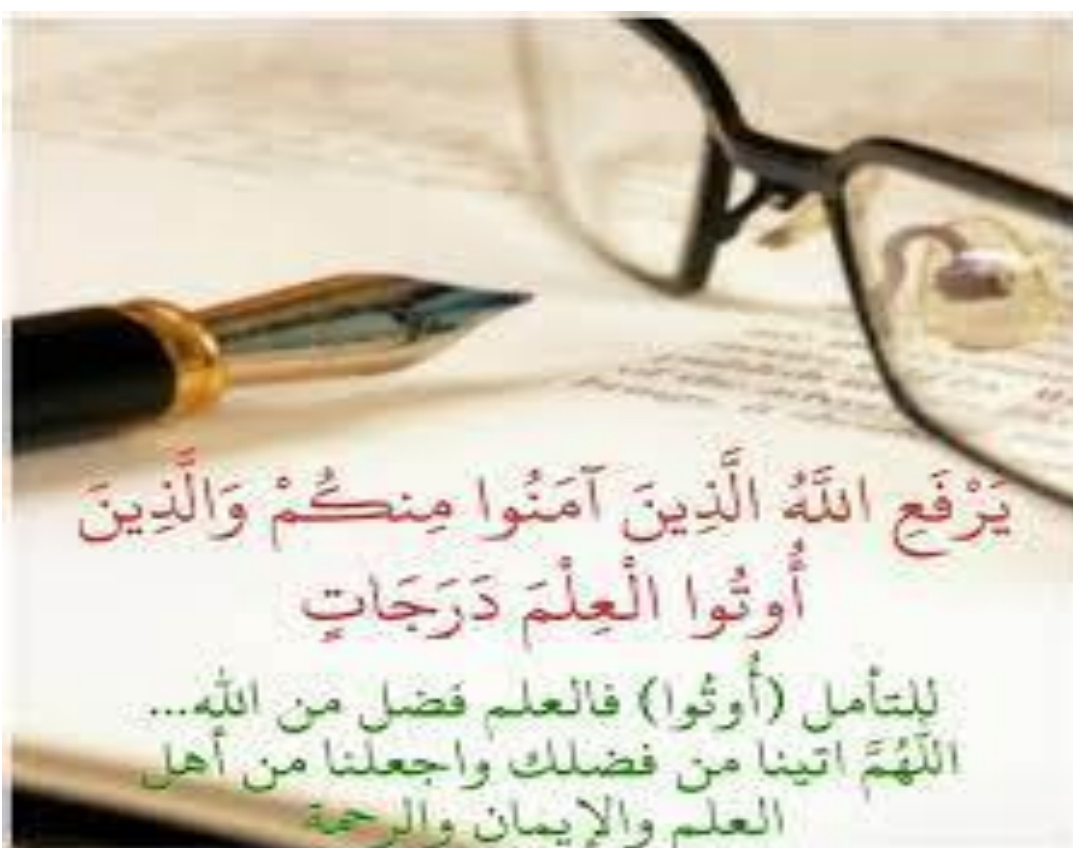 يَرْفَعِ اللَّهُ الَّذِينَ آمَنُوا مِنكُمْ وَالَّذِينَ
أُوتُوا الْعِلْمَ دَرَجَاتٍ
للتأمل (أُوتُوا) فالعلم فضل من الله...
اللهُمَّ اتينا من فضلك واجعلنا من أهل
العلم والإيمان والرحمة